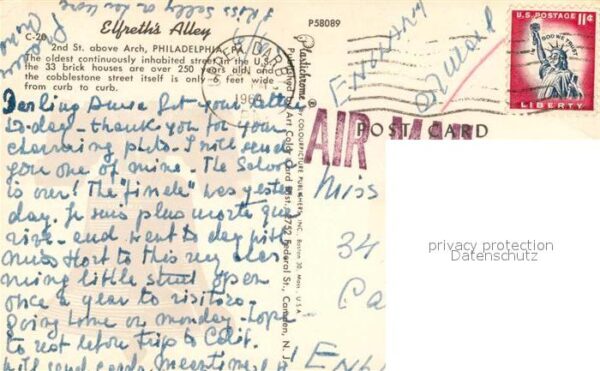 Elfreth's Alley
C-20
P58089
2nd St. above Arch, PHILADELPHIA, PA.
The oldest continuously inhabited street in the U.S.
the 33 brick houses are over 250 years old, and
the cobblestone street itself is only 6 feet wide
from curb to curb.
Darling got your letter
to-day - thank you for your
charming photo. I will send
you one of mine. The School
is over! The "finale" was yester
day. Je suis plus morte que
vive - and went to day with
Miss Hort to this very char
ming little street open
once a year to visitors.
Going home on monday - hope
to rest before trip to Calif.
Will send cards meantime
Plastichrome ® by COLOURPICTURE PUBLISHERS, INC., Boston 30, Mass., U.S.A.
Published by Art Color Card Dist., 3752 Federal St., Camden, N. J.
U.S. POSTAGE 11¢
IN GOD WE TRUST
LIBERTY
DARBY
PA
ENGLAND
POST CARD
AIR MAIL
Miss
34
Ca
ENGL
privacy protection
Datenschutz